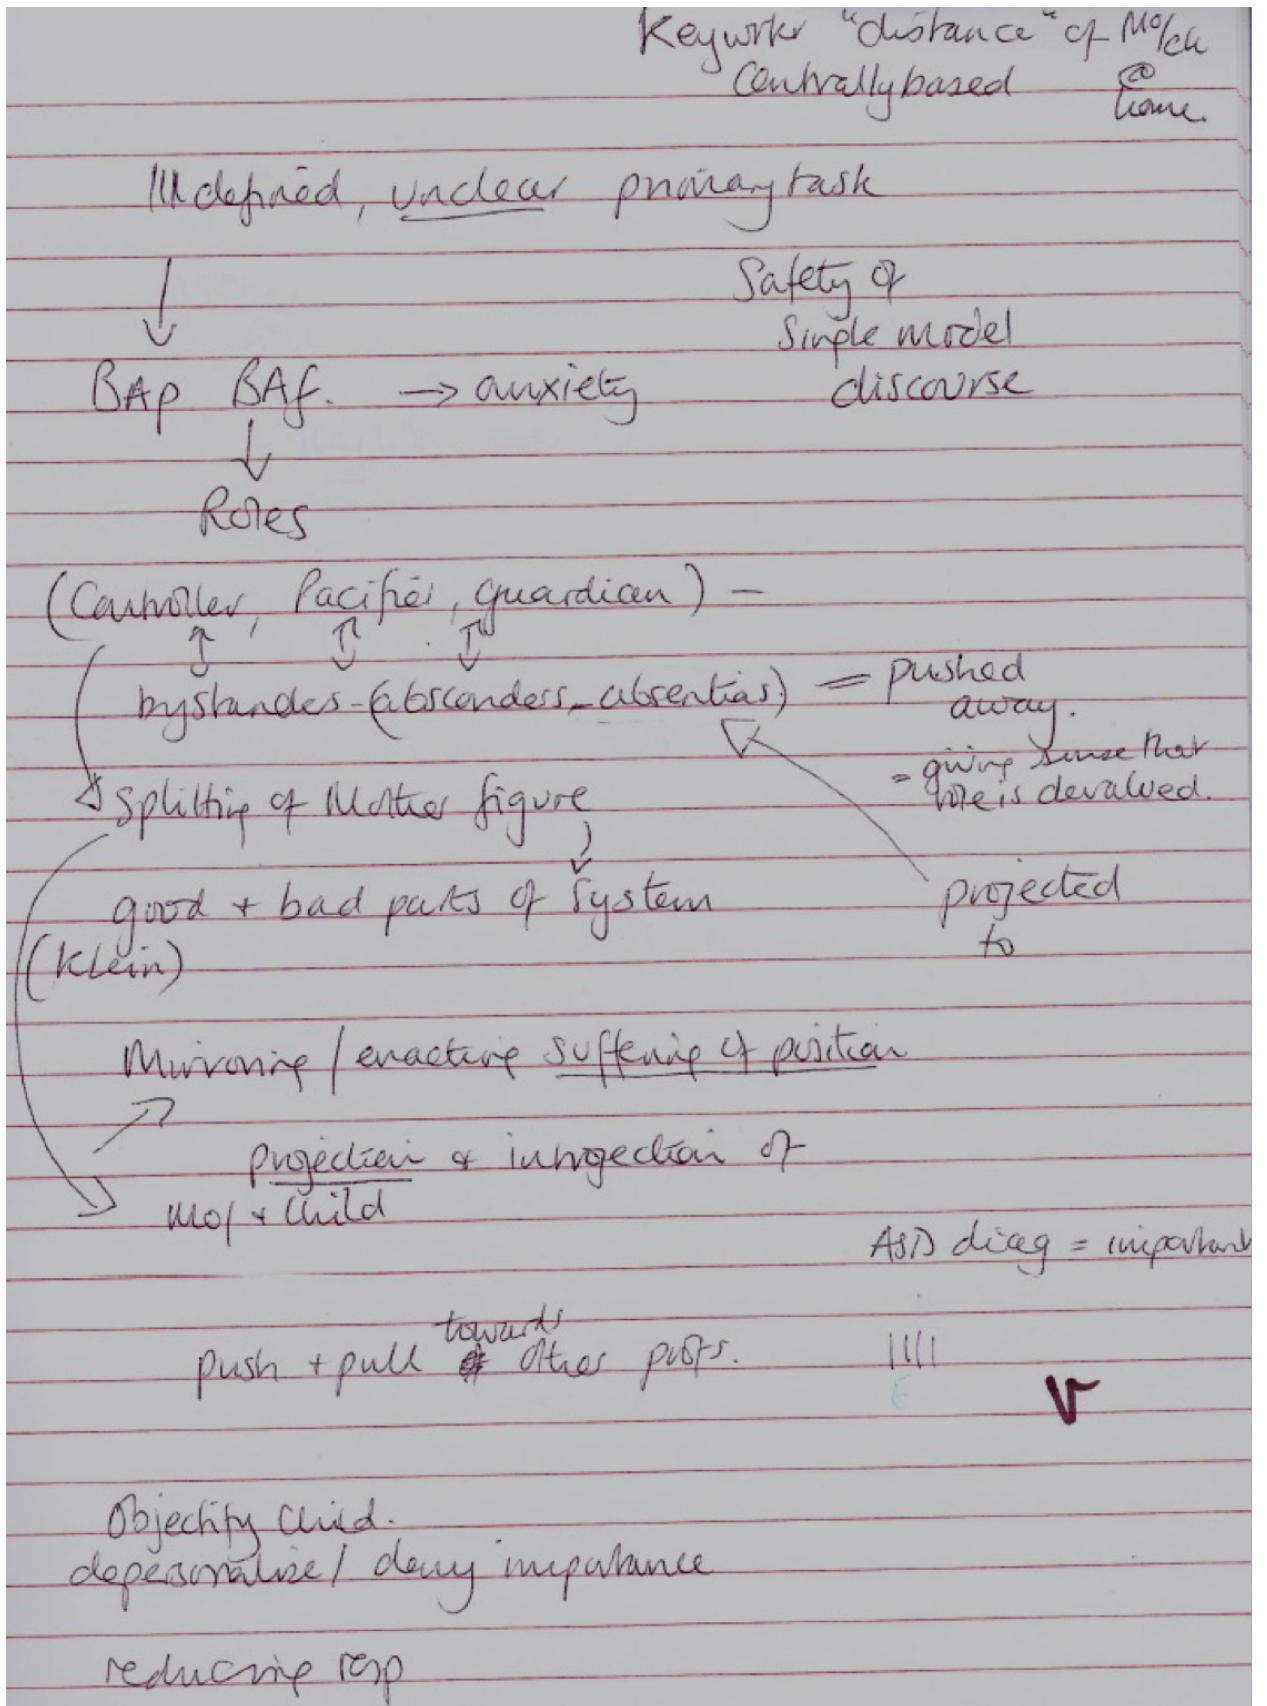 Keywrkr "distance" of Mo/ch
Centrally based @
home.
Ill defined, unclear primary task
Safety of
Single model
discourse
BAp BAf. → anxiety
Roles
(Controller, Pacifier, guardian) –
bystanders - (absconders - absentias) = pushed
away.
= giving sense that
role is devalued.
Splitting of Mother figure
good + bad parts of System
projected
to
(Klein)
Mirroring / enacting suffering of position
projection & introjection of
Mo/ + Child
ASD diag = important
towards
push + pull other profs. ||||
E
V
Objectify Child.
depersonalise / deny importance
reducing resp